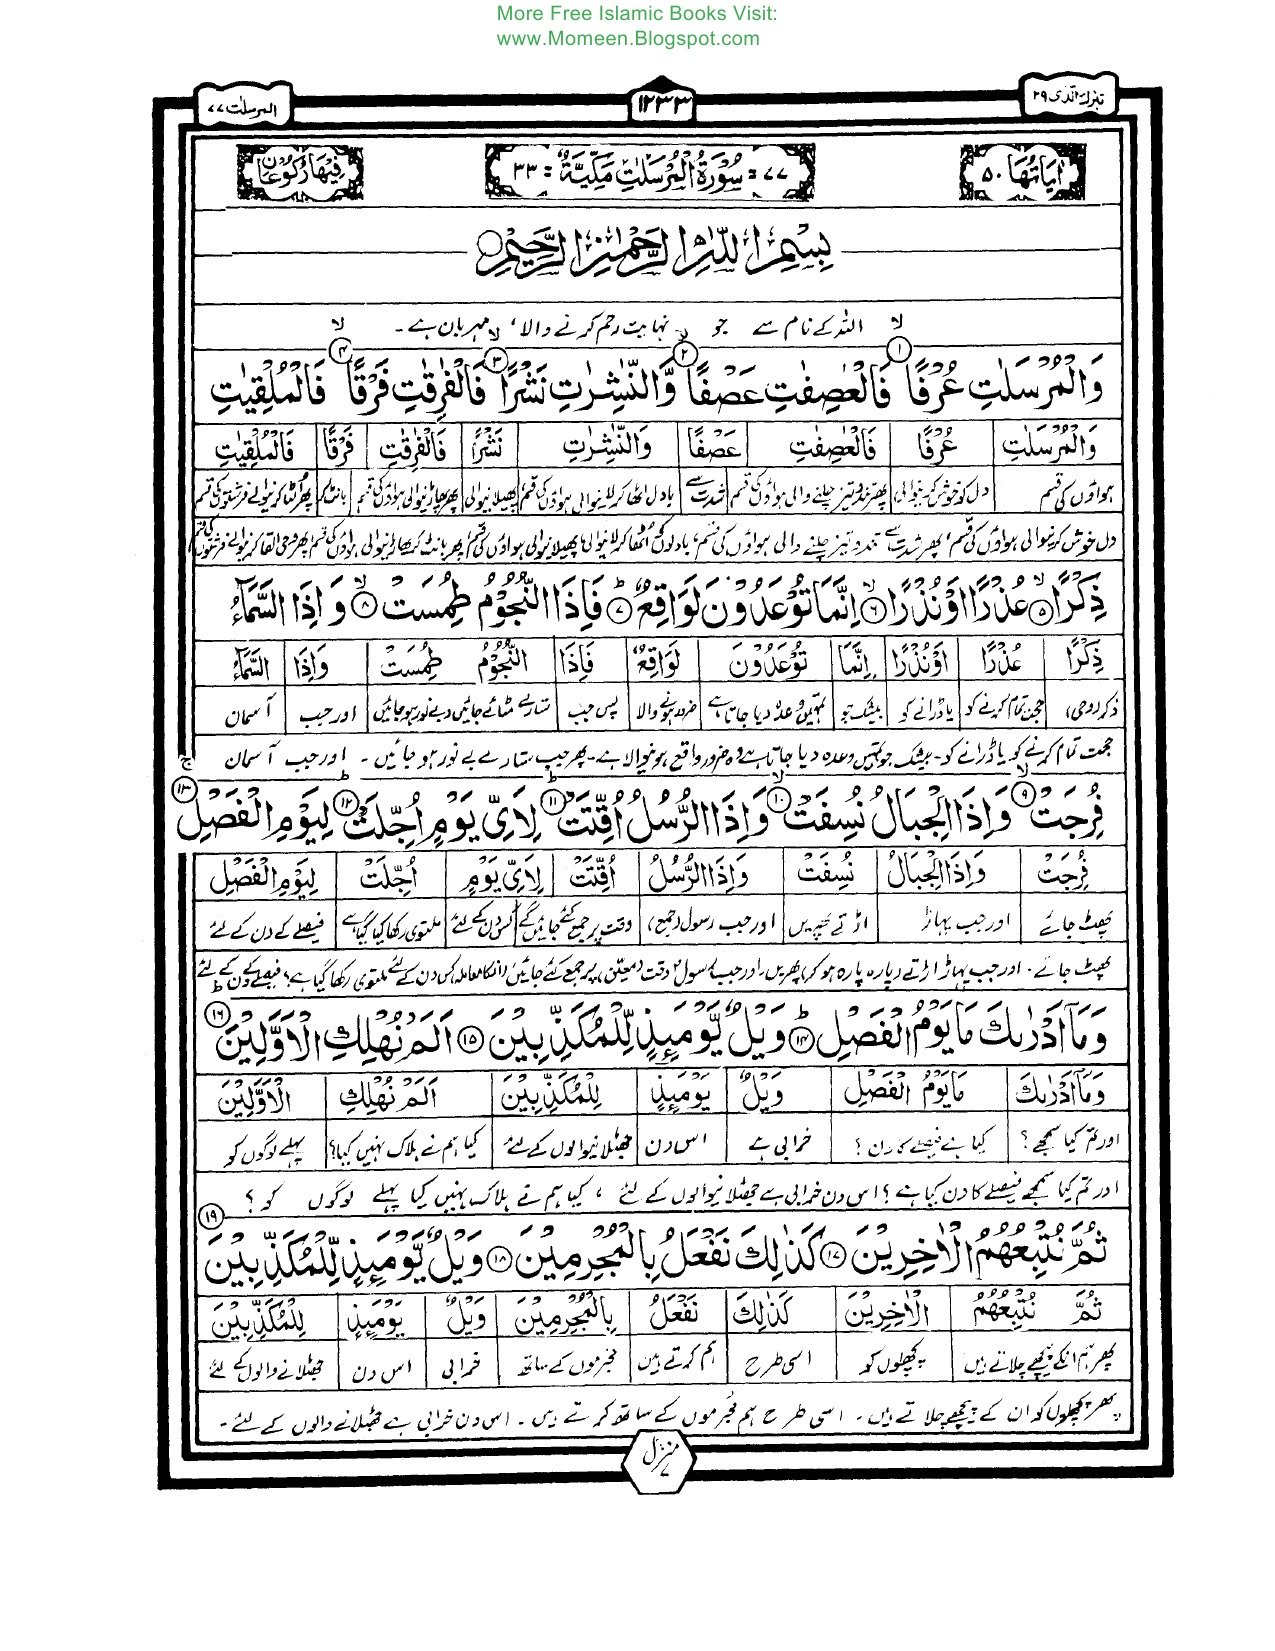 More Free Islamic Books Visit:
www.Momeen.Blogspot.com
تبٰرك الذی ۲۹
۱۲۳۳
المرسلٰت ۷۷
اٰیَاتُهَا ۵۰
۷۷ = سُوْرَةُ الْمُرْسَلٰتِ مَكِّیَّةٌ = ۳۳
فِیْهَا رُكُوْعَانِ
بِسْمِ اللّٰهِ الرَّحْمٰنِ الرَّحِیْمِ
اللہ کے نام سے جو نہایت رحم کرنے والا، مہربان ہے۔
وَالْمُرْسَلٰتِ عُرْفًا ۱ فَالْعٰصِفٰتِ عَصْفًا ۲ وَّالنّٰشِرٰتِ نَشْرًا ۳ فَالْفٰرِقٰتِ فَرْقًا ۴ فَالْمُلْقِیٰتِ
وَالْمُرْسَلٰتِ عُرْفًا فَالْعٰصِفٰتِ عَصْفًا وَالنّٰشِرٰتِ نَشْرًا فَالْفٰرِقٰتِ فَرْقًا فَالْمُلْقِیٰتِ
ہواؤں کی قسم دل کو خوش کرنیوالی پھر تند و تیز چلنے والی ہواؤں کی قسم شدت سے بادل اٹھا کر لانیوالی ہواؤں کی قسم پھیلانیوالی پھر پھاڑنیوالی ہواؤں کی قسم بانٹ کر پھر القا کرنیوالے فرشتوں کی قسم
دل خوش کرنیوالی ہواؤں کی قسم، پھر شدت سے تند و تیز چلنے والی ہواؤں کی قسم، بادلوں کو اٹھا کر لانیوالی پھیلانیوالی ہواؤں کی قسم پھر بانٹ کر پھاڑنیوالی ہواؤں کی قسم پھر وحی القا کرنیوالے فرشتوں کی قسم
ذِكْرًا ۵ عُذْرًا اَوْ نُذْرًا ۶ اِنَّمَا تُوْعَدُوْنَ لَوَاقِعٌ ۷ فَاِذَا النُّجُوْمُ طُمِسَتْ ۸ وَاِذَا السَّمَآءُ
ذِكْرًا عُذْرًا اَوْنُذْرًا اِنَّمَا تُوْعَدُوْنَ لَوَاقِعٌ فَاِذَا النُّجُوْمُ طُمِسَتْ وَاِذَا السَّمَآءُ
ذکر (وحی) حجت تمام کرنے کو یا ڈرانے کو بیشک جو تمہیں وعدہ دیا جاتا ہے ضرور ہونے والا پس جب ستارے مٹائے جائیں (بے نور ہو جائیں) اور جب آسمان
حجت تمام کرنے کو یا ڈرانے کو۔ بیشک جو تمہیں وعدہ دیا جاتا ہے وہ ضرور واقع ہونیوالا ہے۔ پھر جب ستارے بے نور ہو جائیں۔ اور جب آسمان
فُرِجَتْ ۹ وَاِذَا الْجِبَالُ نُسِفَتْ ۱۰ وَاِذَا الرُّسُلُ اُقِّتَتْ ۱۱ لِاَیِّ یَوْمٍ اُجِّلَتْ ۱۲ لِیَوْمِ الْفَصْلِ ۱۳
فُرِجَتْ وَاِذَا الْجِبَالُ نُسِفَتْ وَاِذَا الرُّسُلُ اُقِّتَتْ لِاَیِّ یَوْمٍ اُجِّلَتْ لِیَوْمِ الْفَصْلِ
پھٹ جائے اور جب پہاڑ اڑتے پھریں اور جب رسول (جمع) وقت پر جمع کئے جائیں گے کس دن کے لئے ملتوی رکھا گیا ہے فیصلے کے دن کے لئے
پھٹ جائے۔ اور جب پہاڑ اڑتے (پارہ پارہ ہو کر) پھریں۔ اور جب رسول وقت (معین) پر جمع کئے جائیں (انکا معاملہ) کس دن کے لئے ملتوی رکھا گیا ہے؟ فیصلے کے دن کے لئے
وَمَآ اَدْرٰىكَ مَا یَوْمُ الْفَصْلِ ۱۴ وَیْلٌ یَّوْمَئِذٍ لِّلْمُكَذِّبِیْنَ ۱۵ اَلَمْ نُهْلِكِ الْاَوَّلِیْنَ ۱۶
وَمَآ اَدْرٰىكَ مَا یَوْمُ الْفَصْلِ وَیْلٌ یَوْمَئِذٍ لِلْمُكَذِّبِیْنَ اَلَمْ نُهْلِكِ الْاَوَّلِیْنَ
اور تم کیا سمجھے؟ کیا ہے فیصلے کا دن؟ خرابی ہے اس دن جھٹلانیوالوں کے لئے کیا ہم نے ہلاک نہیں کیا؟ پہلے لوگوں کو
اور تم کیا سمجھے فیصلے کا دن کیا ہے؟ اس دن خرابی ہے جھٹلانیوالوں کے لئے، کیا ہم نے ہلاک نہیں کیا پہلے لوگوں کو؟
ثُمَّ نُتْبِعُهُمُ الْاٰخِرِیْنَ ۱۷ كَذٰلِكَ نَفْعَلُ بِالْمُجْرِمِیْنَ ۱۸ وَیْلٌ یَّوْمَئِذٍ لِّلْمُكَذِّبِیْنَ ۱۹
ثُمَّ نُتْبِعُهُمُ الْاٰخِرِیْنَ كَذٰلِكَ نَفْعَلُ بِالْمُجْرِمِیْنَ وَیْلٌ یَوْمَئِذٍ لِلْمُكَذِّبِیْنَ
پھر ہم انکے پیچھے چلاتے ہیں پچھلوں کو اسی طرح ہم کرتے ہیں مجرموں کے ساتھ خرابی اس دن جھٹلانے والوں کے لئے
پھر پچھلوں کو ان کے پیچھے چلاتے ہیں۔ اسی طرح ہم مجرموں کے ساتھ کرتے ہیں۔ اس دن خرابی ہے جھٹلانے والوں کے لئے۔
منزل ۷